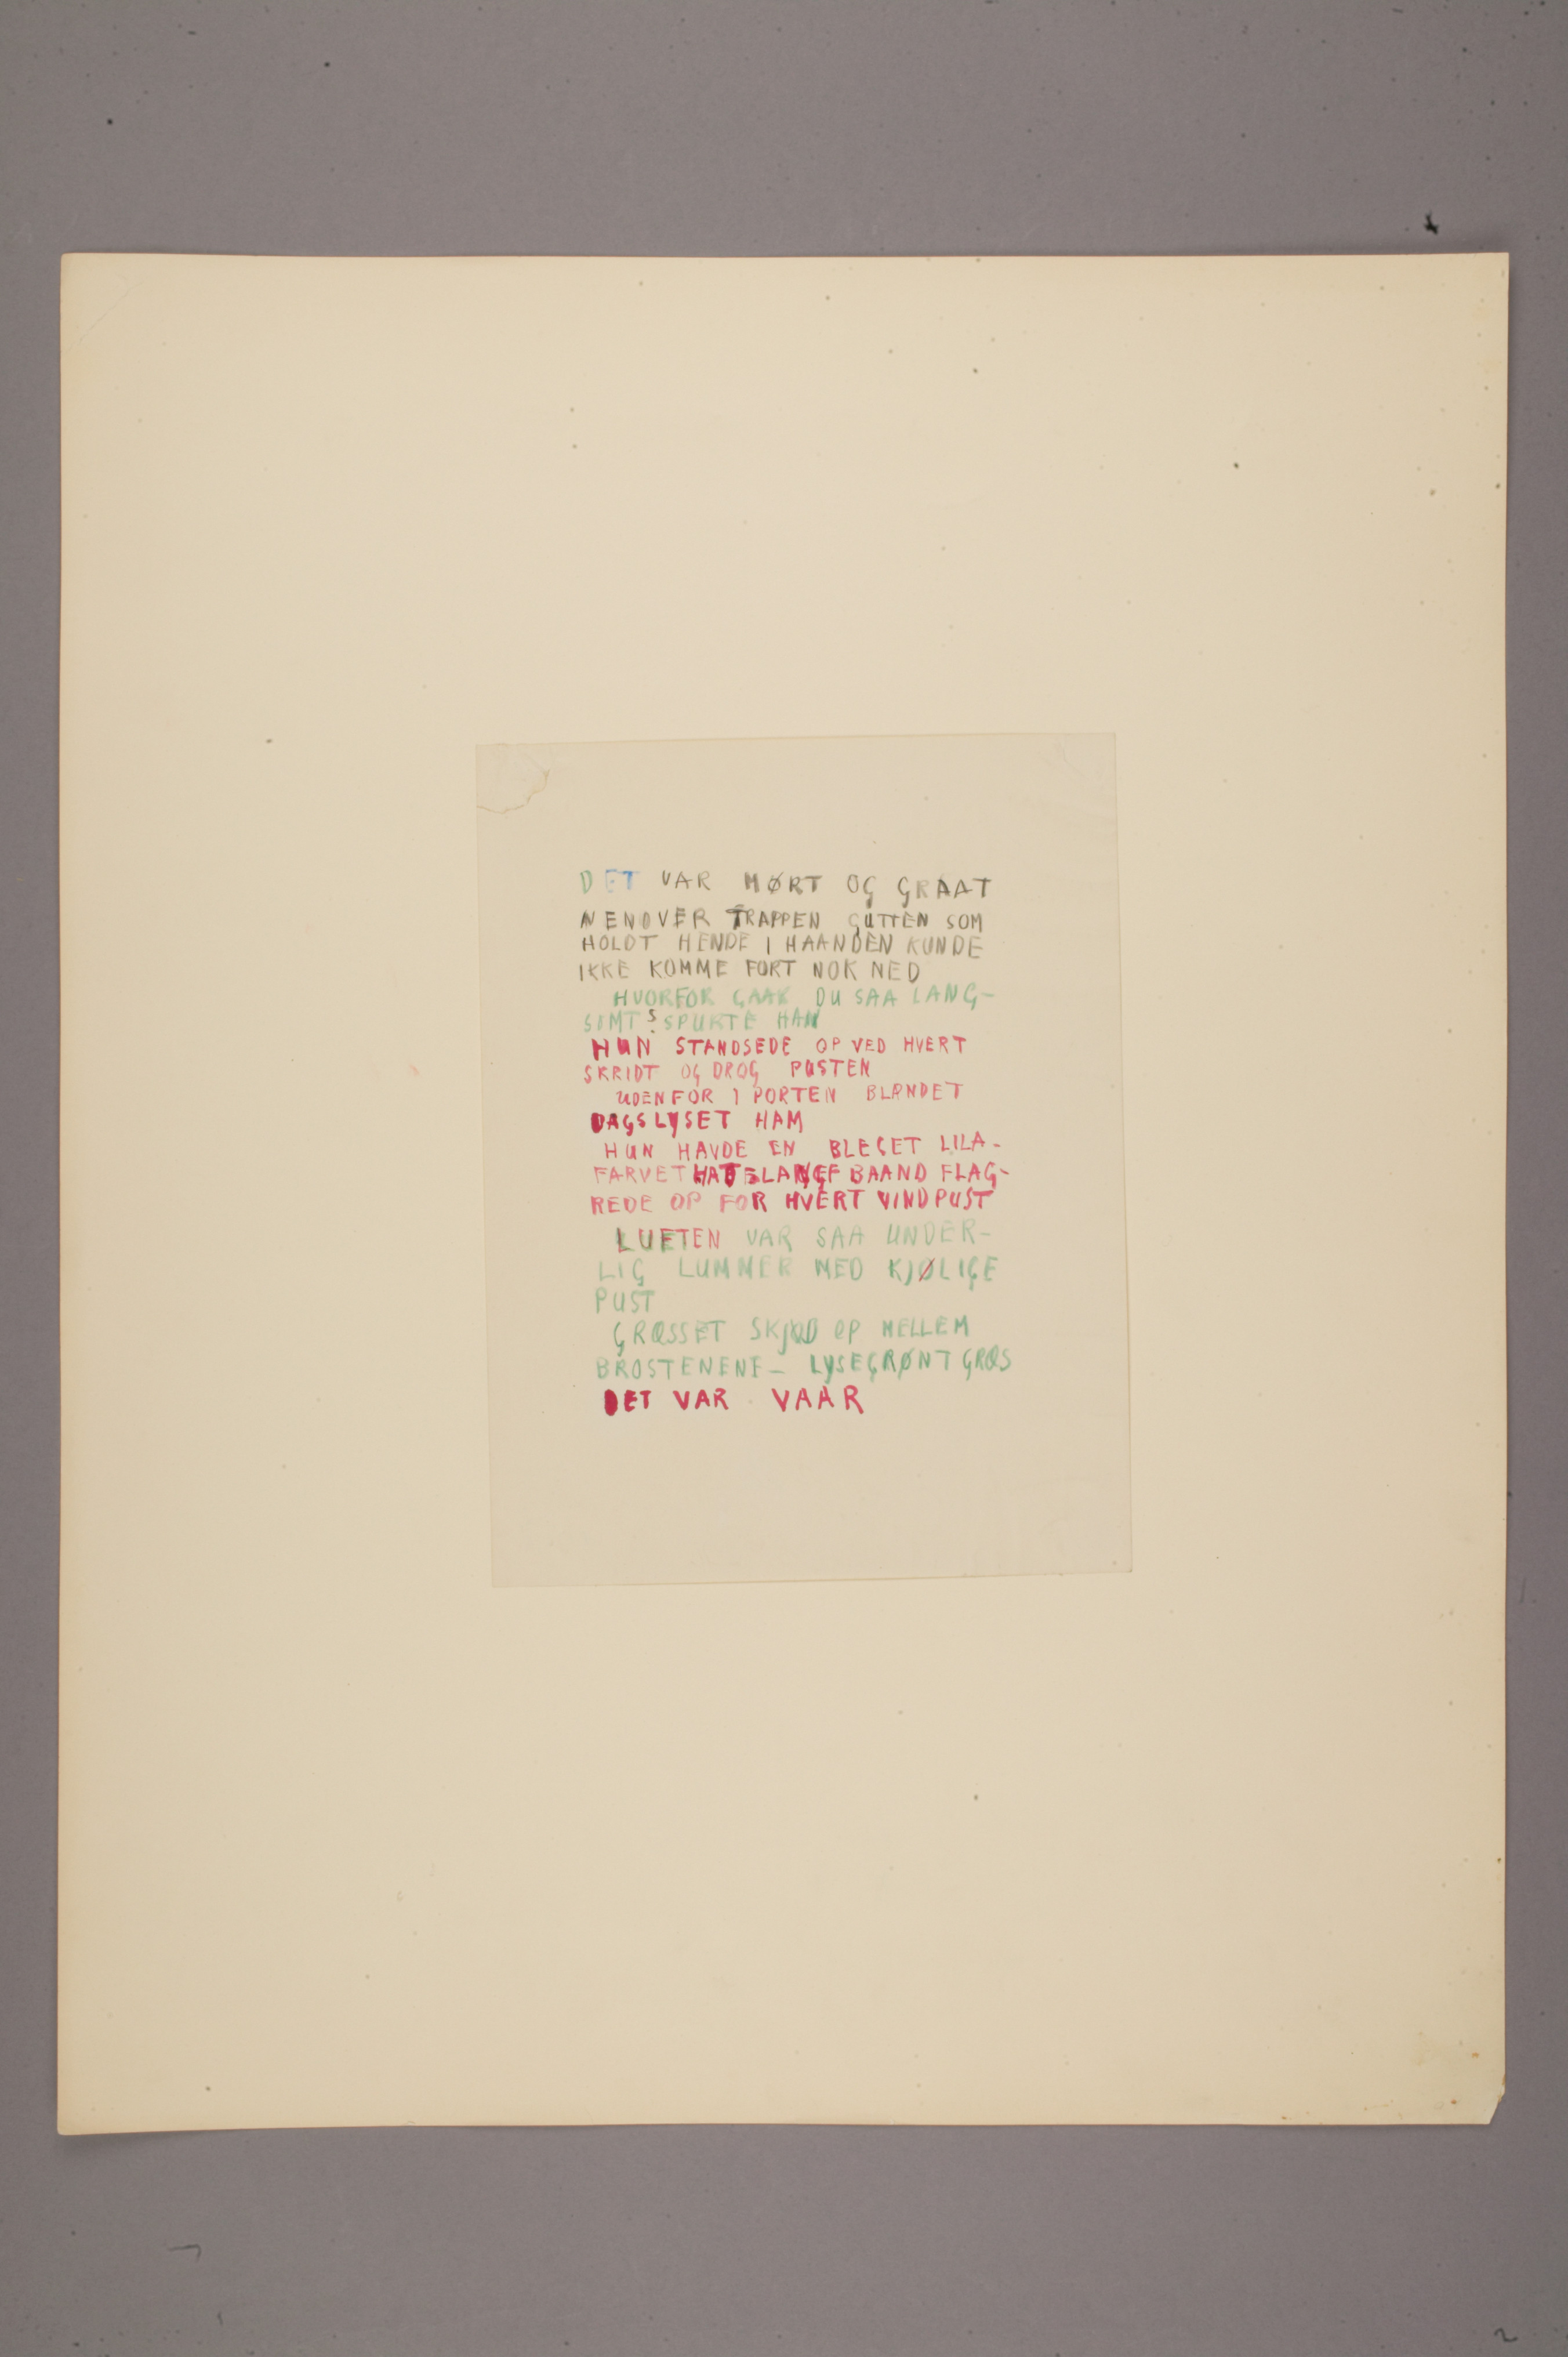 DET VAR MØRT OG GRAAT
NENOVER TRAPPEN GUTTEN SOM
HOLDT HENDE I HAANDEN KUNDE
IKKE KOMME FORT NOK NED
HVORFOR GAAR DU SAA LANG-
SOMT? SPURTE HAN
HUN STANDSEDE OP VED HVERT
SKRIDT OG DROG PUSTEN
UDENFOR I PORTEN BLÆNDET
DAGSLYSET HAM
HUN HAVDE EN BLEGET LILA-
FARVET HAT SLANGE BAAND FLAG-
REDE OP FOR HVERT VINDPUST
LUFTEN VAR SAA UNDER-
LIG LUMMER MED KJØLIGE
PUST
GRÆSSET SKJØD OP MELLEM
BROSTENENE – LYSEGRØNT GRÆS
DET VAR VAAR